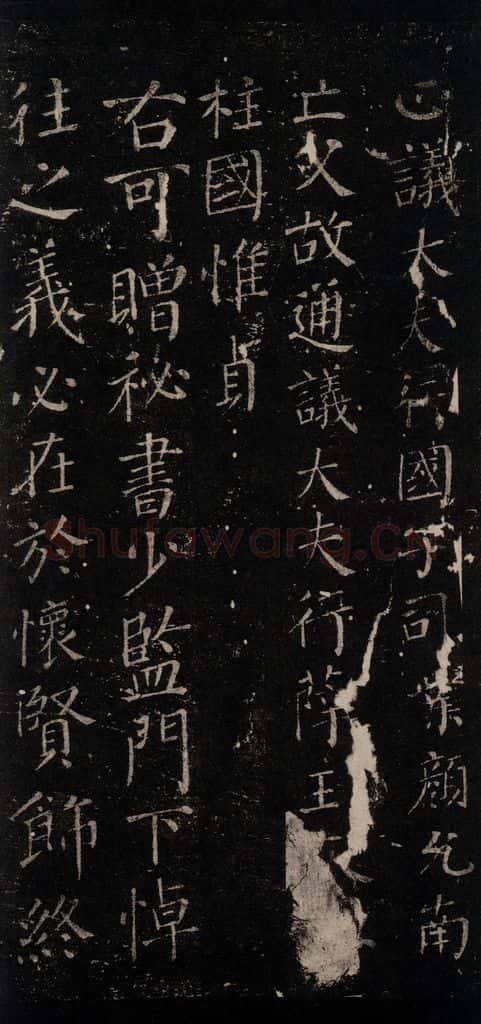 正議大夫行國子司業顏允南
亡父故通議大夫行薛王
柱國惟貞
右可贈秘書少監門下悼
往之義必在於懷賢飾終
Shufawang.cn